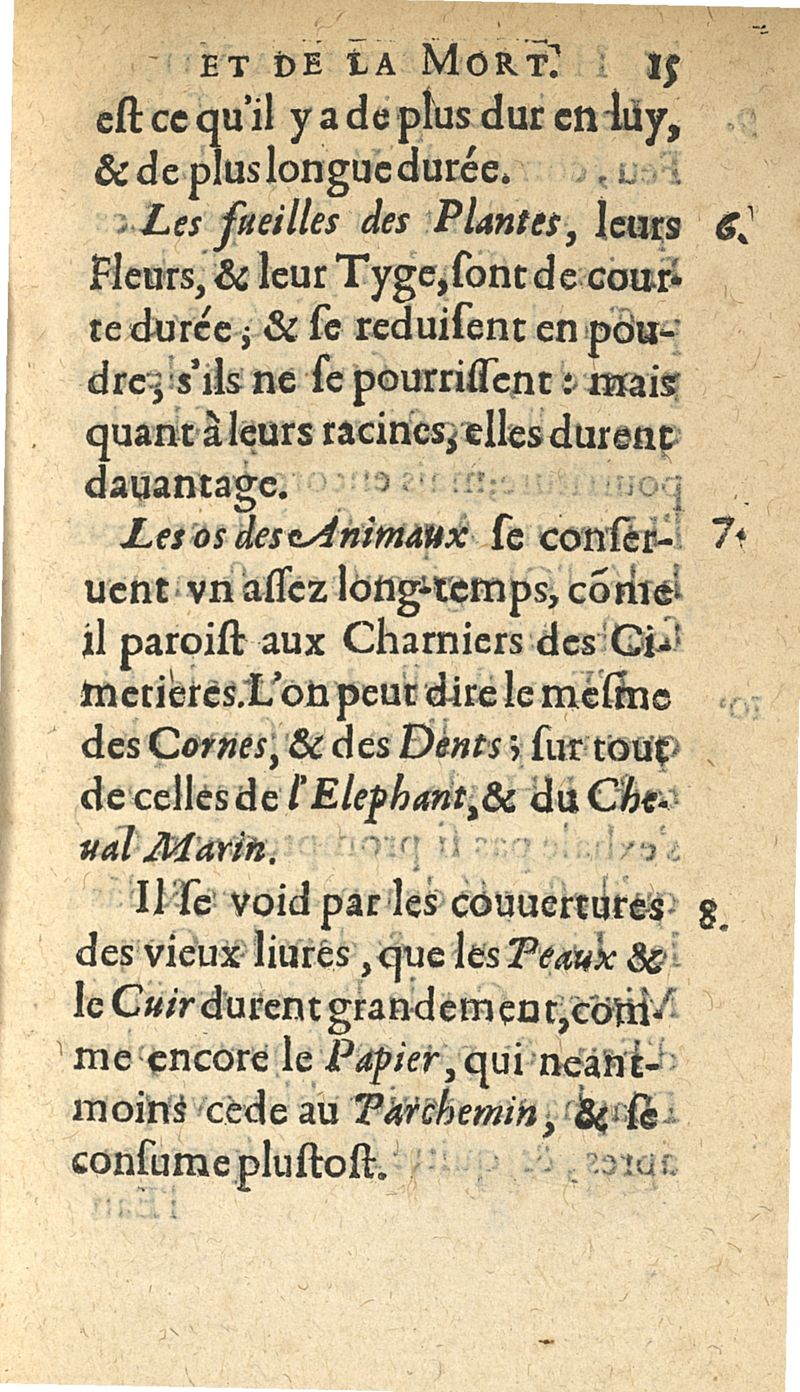 ET DE LA MORT. 15
eſt ce qu'il y a de plus dur en luy,
& de plus longue durée.
Les fueilles des Plantes, leurs 6.
Fleurs, & leur Tyge, ſont de cour-
te durée ; & ſe reduiſent en pou-
dre, s'ils ne ſe pourriſſent : mais
quant à leurs racines, elles durent
dauantage.
Les os des Animaux ſe conſer- 7.
uent vn aſſez long-temps, cõme
il paroiſt aux Charniers des Ci-
metieres. L'on peut dire le meſme
des Cornes, & des Dents ; ſur tout
de celles de l'Elephant, & du Che-
ual Marin.
Il ſe void par les couuertures 8.
des vieux liures, que les Peaux &
le Cuir durent grandement, com-
me encore le Papier, qui neant-
moins cede au Parchemin, & ſe
conſume pluſtoſt.